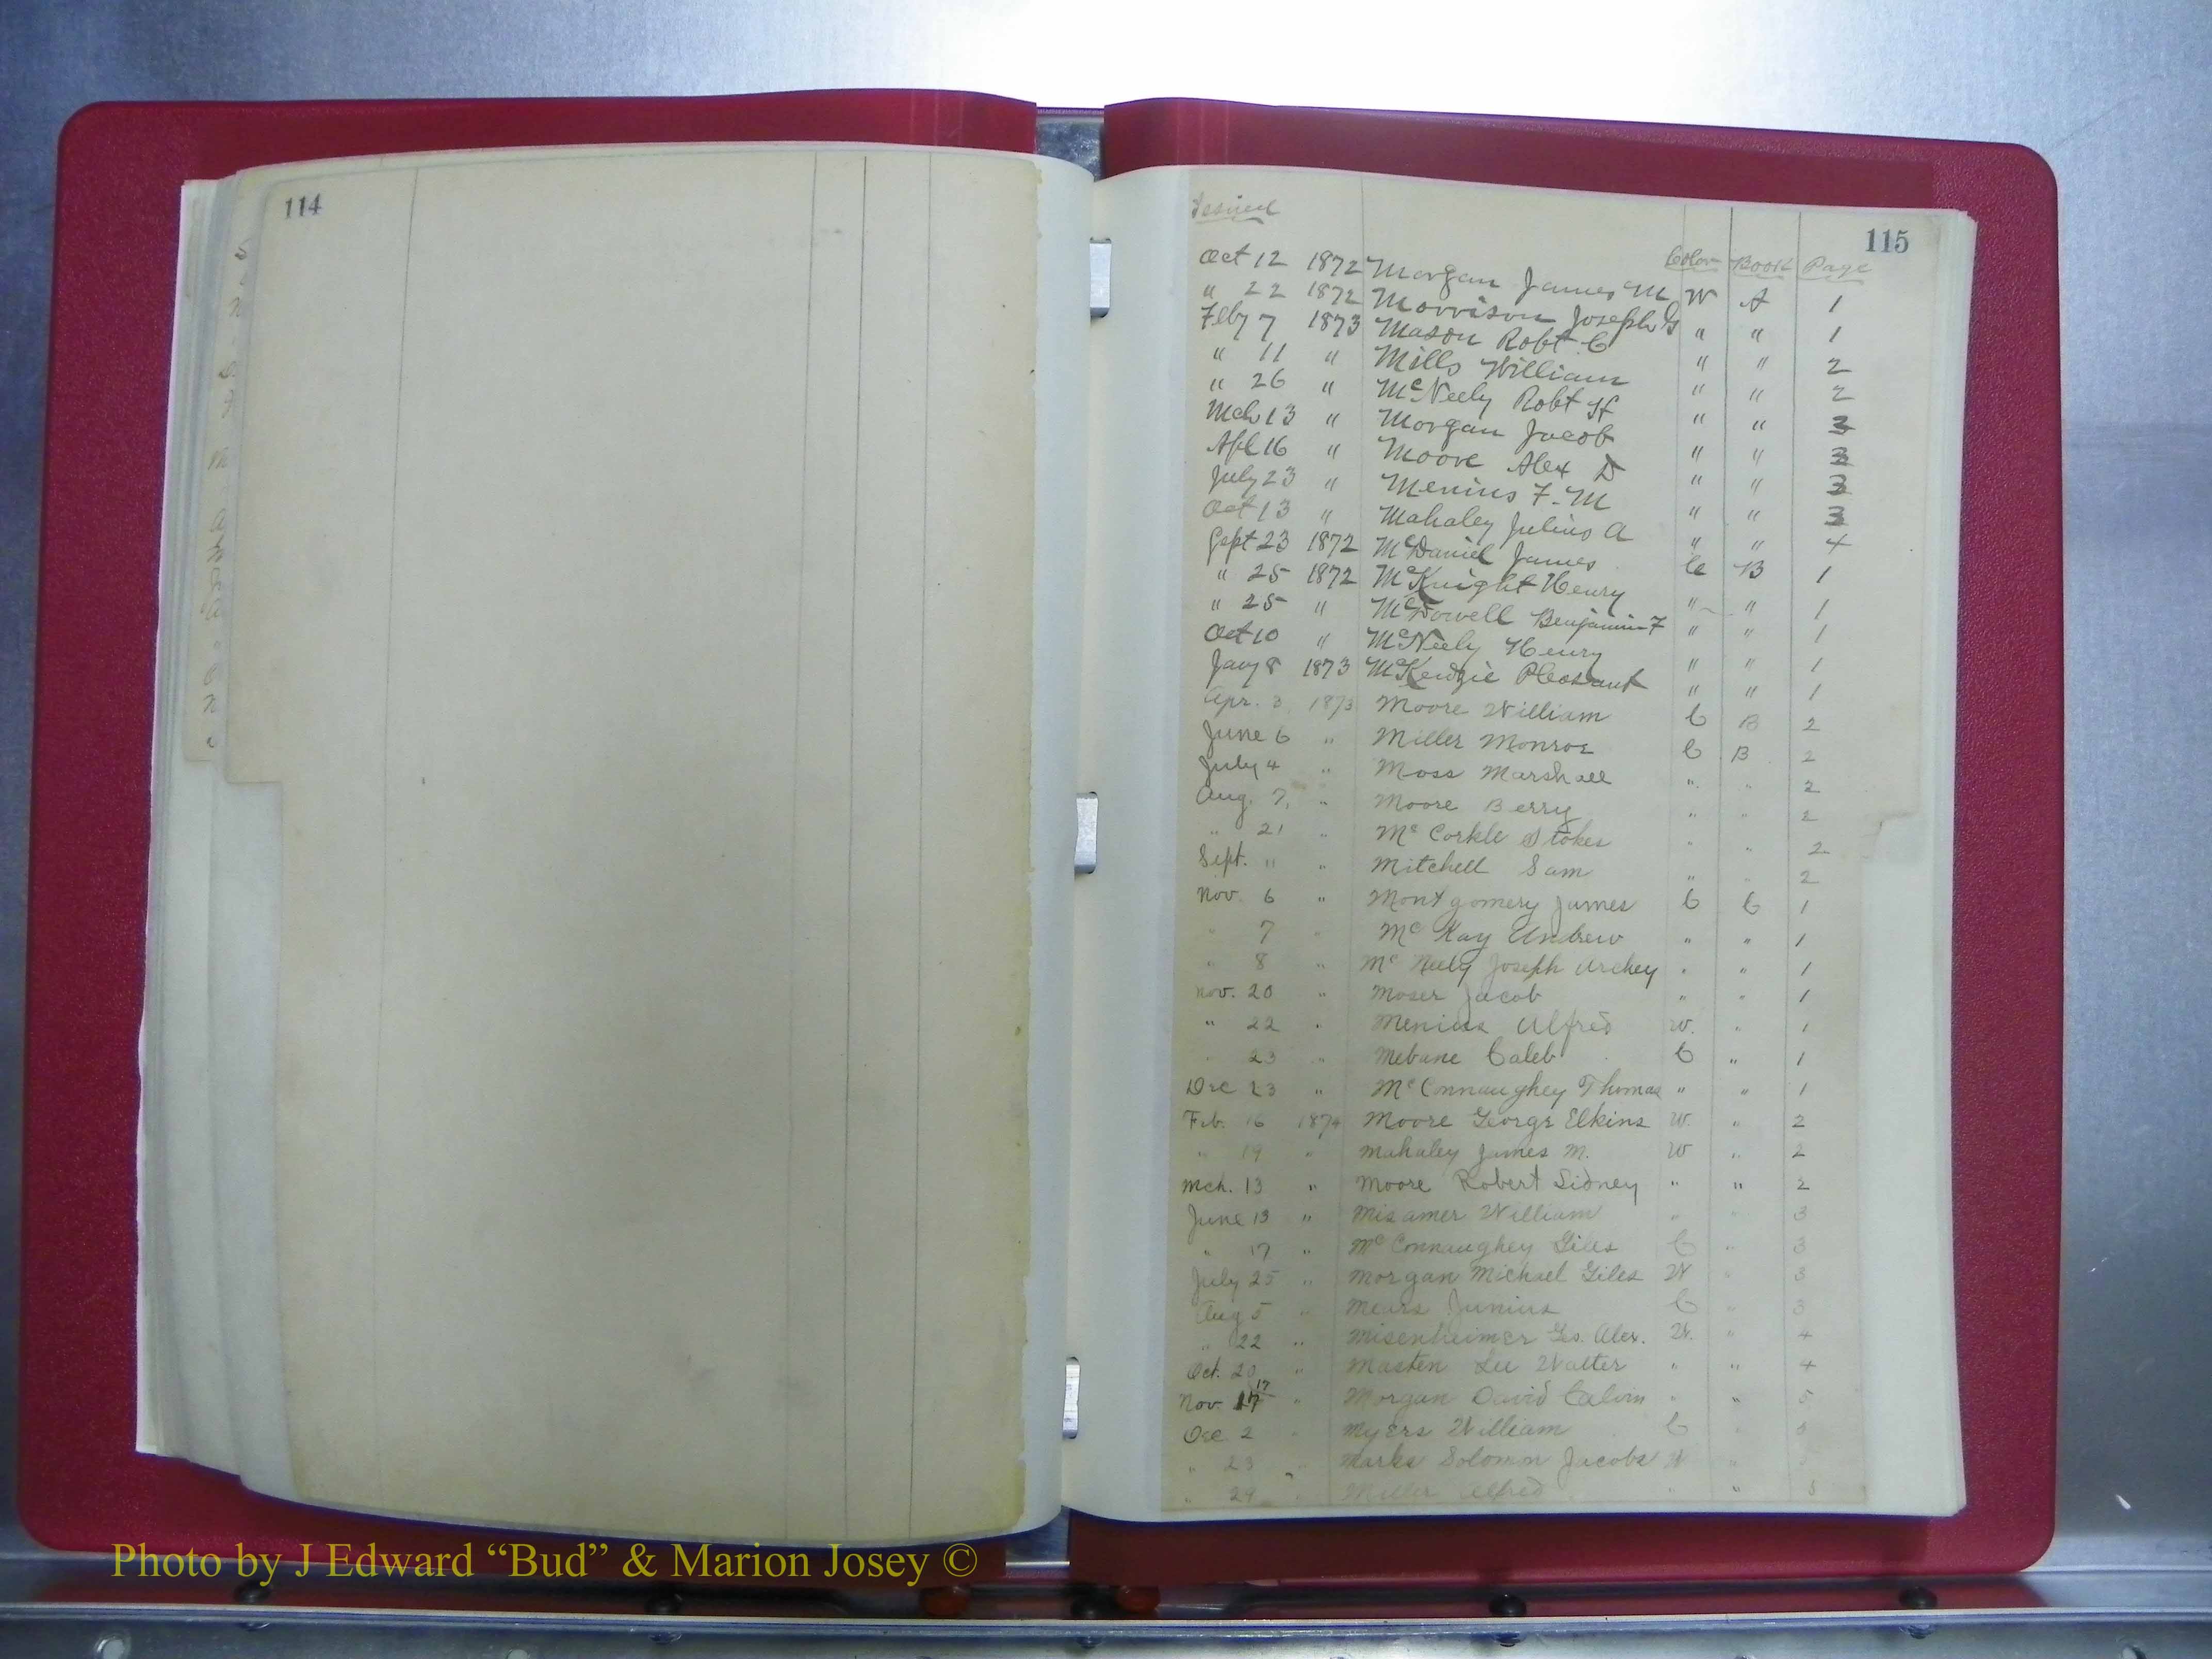 114
115
Issued
Color Book Page
Oct 12 1872 Morgan James M W A 1
" 22 1872 Morrison Joseph G " " 1
Feby 7 1873 Mason Robt C " " 2
" 11 " Mills William " " 2
" 26 " McNeely Robt H " " 3
Mch 13 " Morgan Jacob " " 3
Apl 16 " Moore Alex D " " 3
July 23 " Menius F. M " " 3
Oct 13 " Mahaley Julius A " " 4
Sept 23 1872 McDaniel James C B 1
" 25 1872 McKnight Henry " " 1
" 25 " McDowell Benjamin F " " 1
Oct 10 " McNeely Henry " " 1
Jany 8 1873 McKenzie Pleasant " " 1
Apr. 3, 1873 Moore William C B 2
June 6 " Miller Monroe C B 2
July 4 " Moss Marshall " " 2
Aug. 7, " Moore Berry " " 2
" 21 " Mc Corkle Stokes " " 2
Sept. 11 " Mitchell Sam " " 2
Nov. 6 " Montgomery James C C 1
" 7 " Mc Kay Andrew " " 1
" 8 " Mc Neely Joseph Archey " " 1
Nov. 20 " Moser Jacob " " 1
" 22 " Menius Alfred W. " 1
" 23 " Mebane Caleb C " 1
Dec 23 " McConnaughey Thomas " " 1
Feb. 16 1874 Moore George Elkins W. " 2
" 19 " Mahaley James M. W " 2
Mch. 13 " Moore Robert Sidney " " 2
June 13 " Misamer William " " 3
" 17 " McConnaughey Giles C " 3
July 25 " Morgan Michael Giles W " 3
Aug 5 " Mears Junius C " 3
" 22 " Misenheimer Gs. Alex. W. " 4
Oct. 20 " Masten Lee Walter " " 4
Nov. 17 17 " Morgan David Calvin " " 5
Dec. 2 " Myers William C " 5
" 23 " Marks Solomon Jacobs W "
" 29 " Miller Alfred " " 5
Photo by J Edward “Bud” & Marion Josey ©